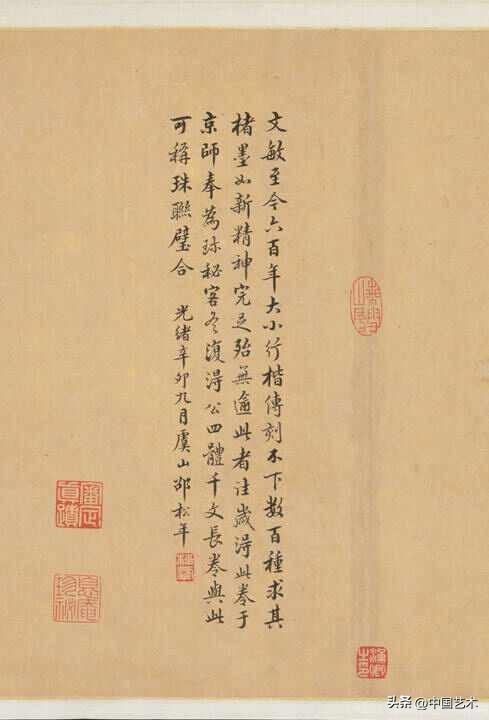 文敏至今六百年大小行楷傳刻不下數百種求其
楮墨如新精神完足殆無逾此者往歲得此卷于
京師奉為珎秘客冬復得公四體千文長卷與此
可稱珠聯璧合 光緒辛卯九月虞山邵松年
審定真蹟
頭条 @中国艺术